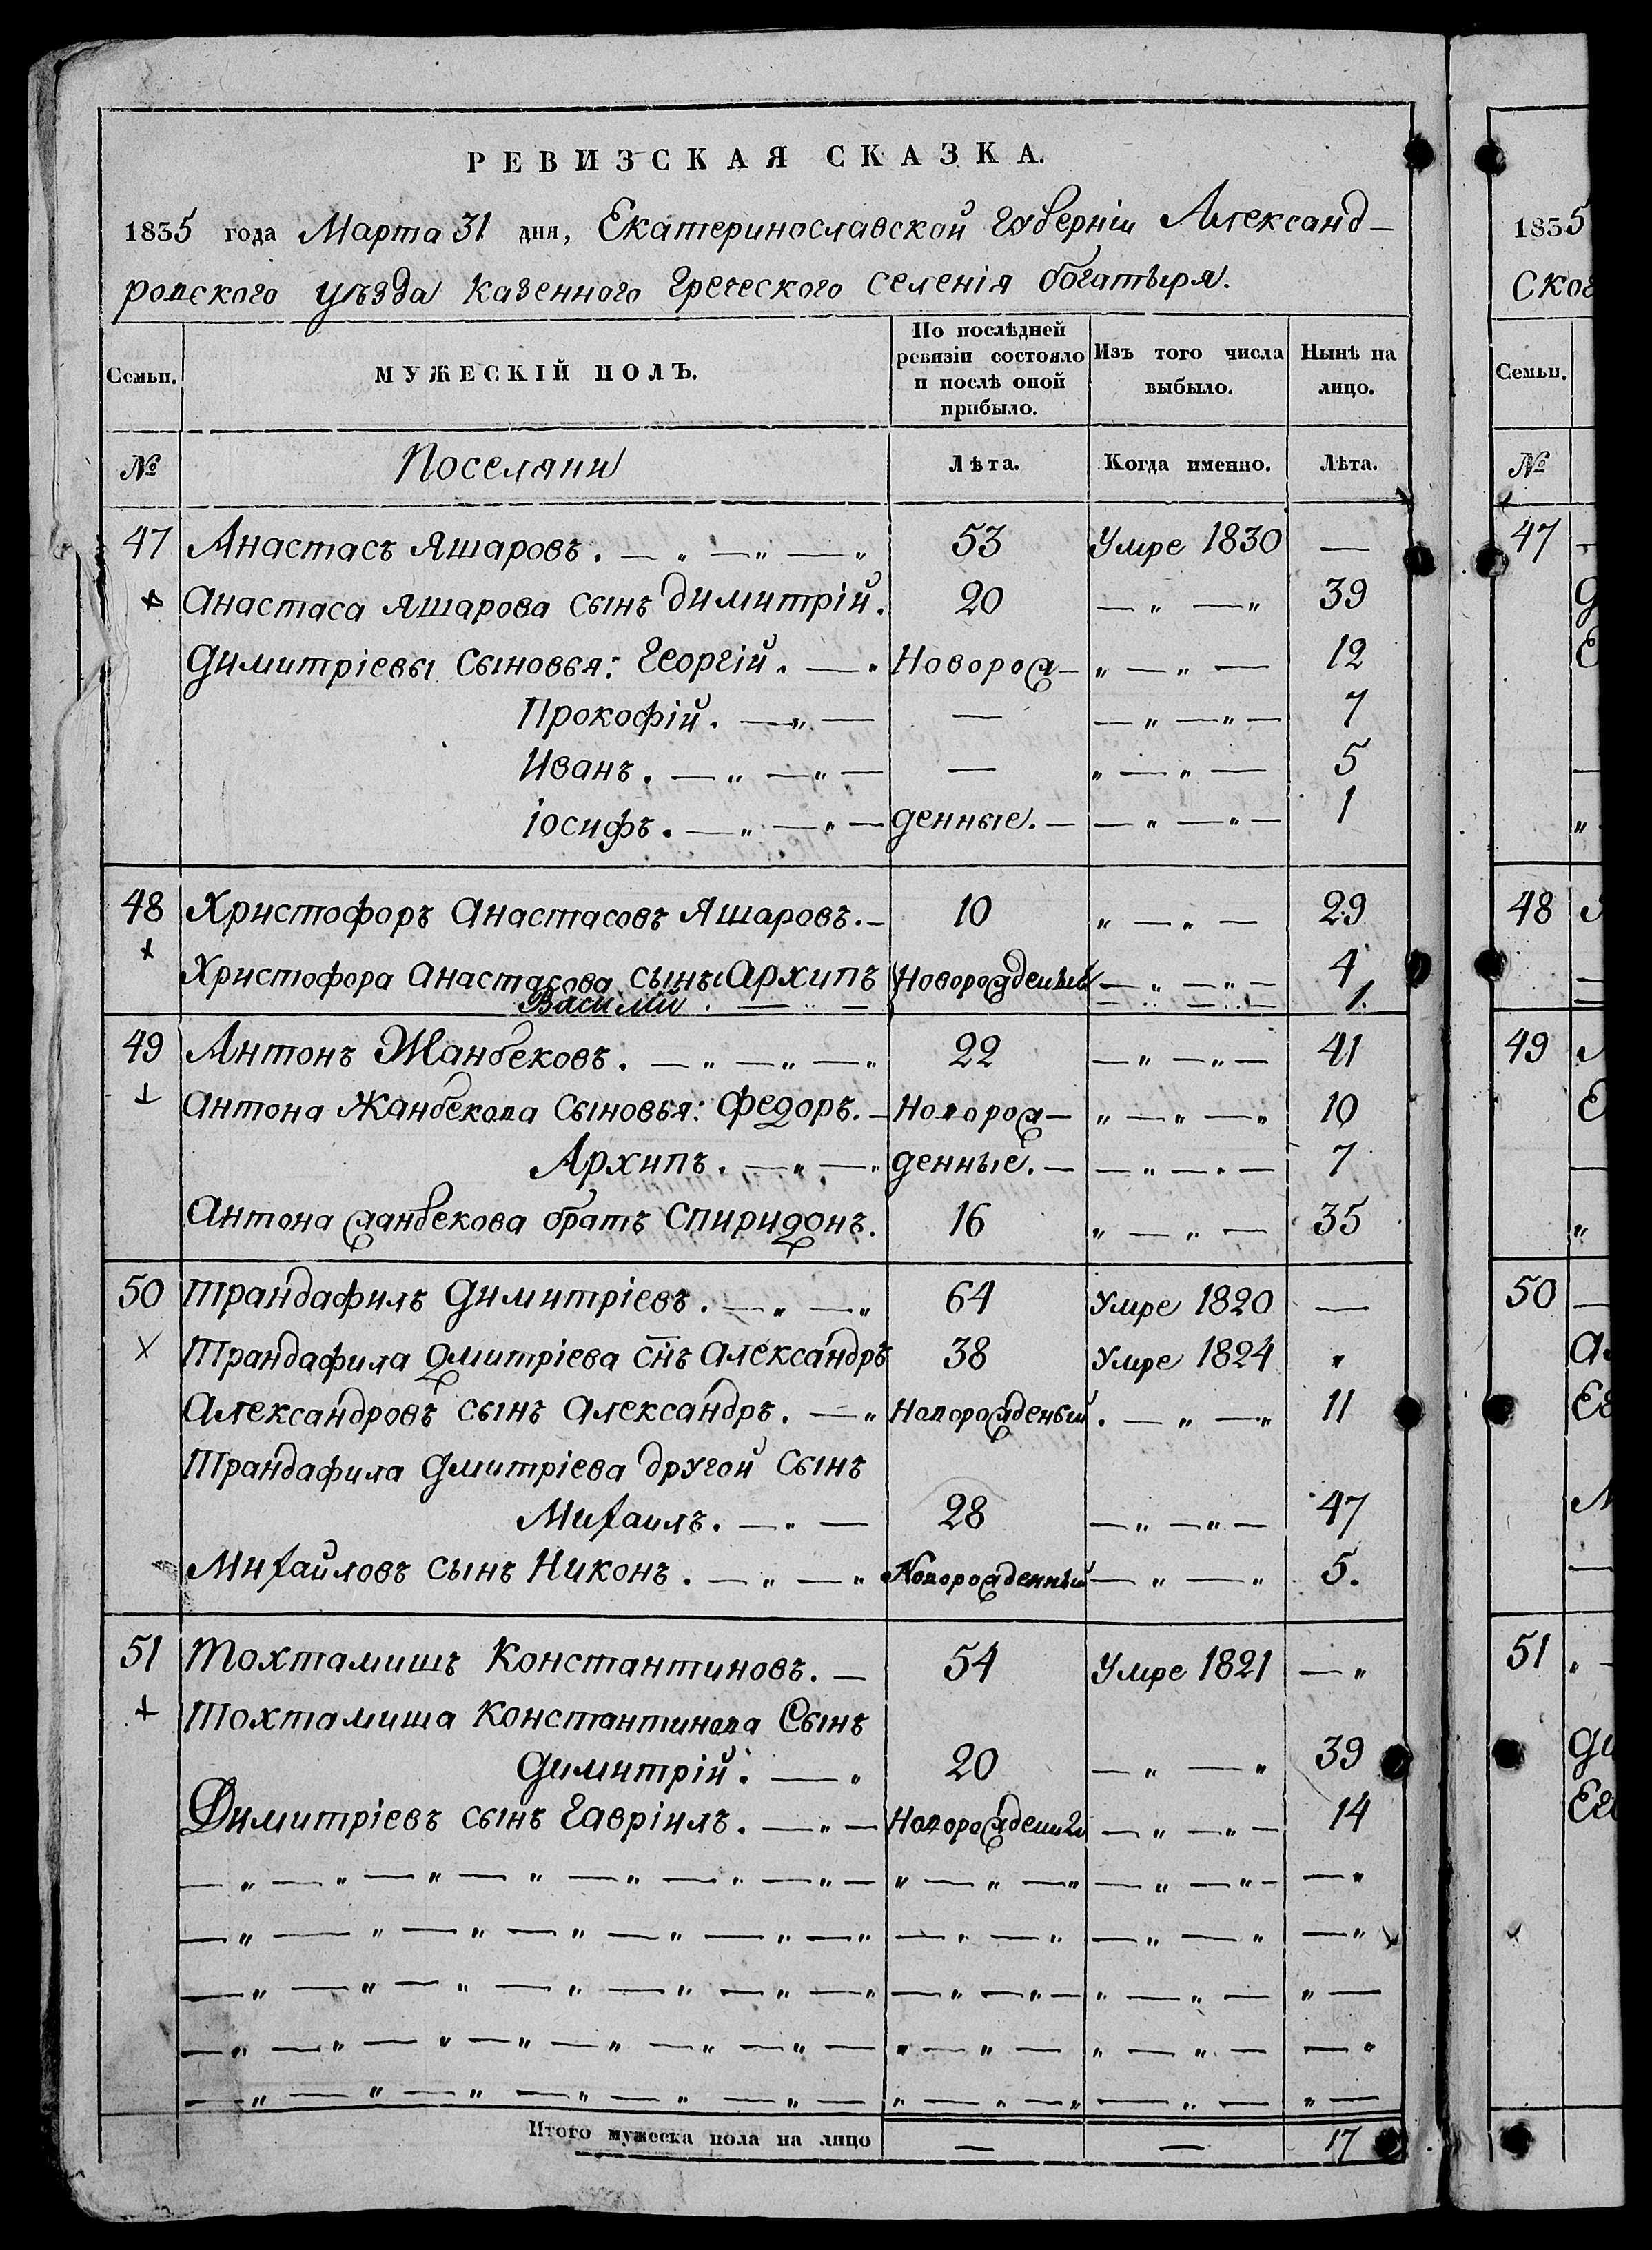 РЕВИЗСКАЯ СКАЗКА.
1835 года Марта 31 дня, Екатеринославской губерніи Александ–
ровского уѣзда казенного Греческого селенія богатыря.
Семьи. МУЖЕСКІЙ ПОЛЪ. По послѣдней ревизіи состояло и послѣ оной прибыло. Изъ того числа выбыло. Нынѣ на лицо.
№ Поселяни Лѣта. Когда именно. Лѣта.
47 Анастасъ Яшаровъ. — „ — „ — „ 53 Умре 1830 —
Анастаса Яшарова сынъ Димитрій. 20 — „ — „ 39
Димитріевы Сыновья: Георгій. — „ Новорож– „ — „ — 12
Прокофій. — „ — — — „ — „ — 7
Иванъ. — „ — „ — — „ — „ — 5
Іосифъ. — „ — „ — денные. — — „ — „ — 1
48 Христофоръ Анастасовъ Яшаровъ. – 10 „ — „ — 29
× Христофора Анастасова сынъ: Архипъ Новорожденый — „ — „ — 4
Василій . — „ — — „ — „ — 1.
49 Антонъ Жанбековъ. — „ — „ — „ 22 — „ — „ — 41
Антона Жанбекова Сыновья: Федоръ. – Новорож– „ — „ — „ 10
Архипъ. — „ — „ денные. — — „ — „ — 7
Антона жанбекова братъ Спиридонъ. 16 „ — „ — 35
50 Трандафилъ Димитріевъ. — „ — „ 64 Умре 1820 —
× Трандафила Дмитріева снъ Александръ 38 Умре 1824 „
Александровъ сынъ Александръ. — „ Новорожденый. — „ — „ 11
Трандафила Дмитріева другой Сынъ
Михаилъ. — „ — 28 — „ — „ — 47
Михайловъ сынъ Никонъ. — „ — „ Новорожденный — „ — „ 5.
51 Тохтамишъ Константиновъ. — 54 Умре 1821 — „
Тохтамиша Константинова Сынъ
Димитрій. — „ 20 — „ — „ 39
Димитріевъ сынъ Гавріилъ. — „ — — „ — „ — 14
Итого мужеска пола на лицо — — 17
1835
Семьи.
№
47
48
49
50
51